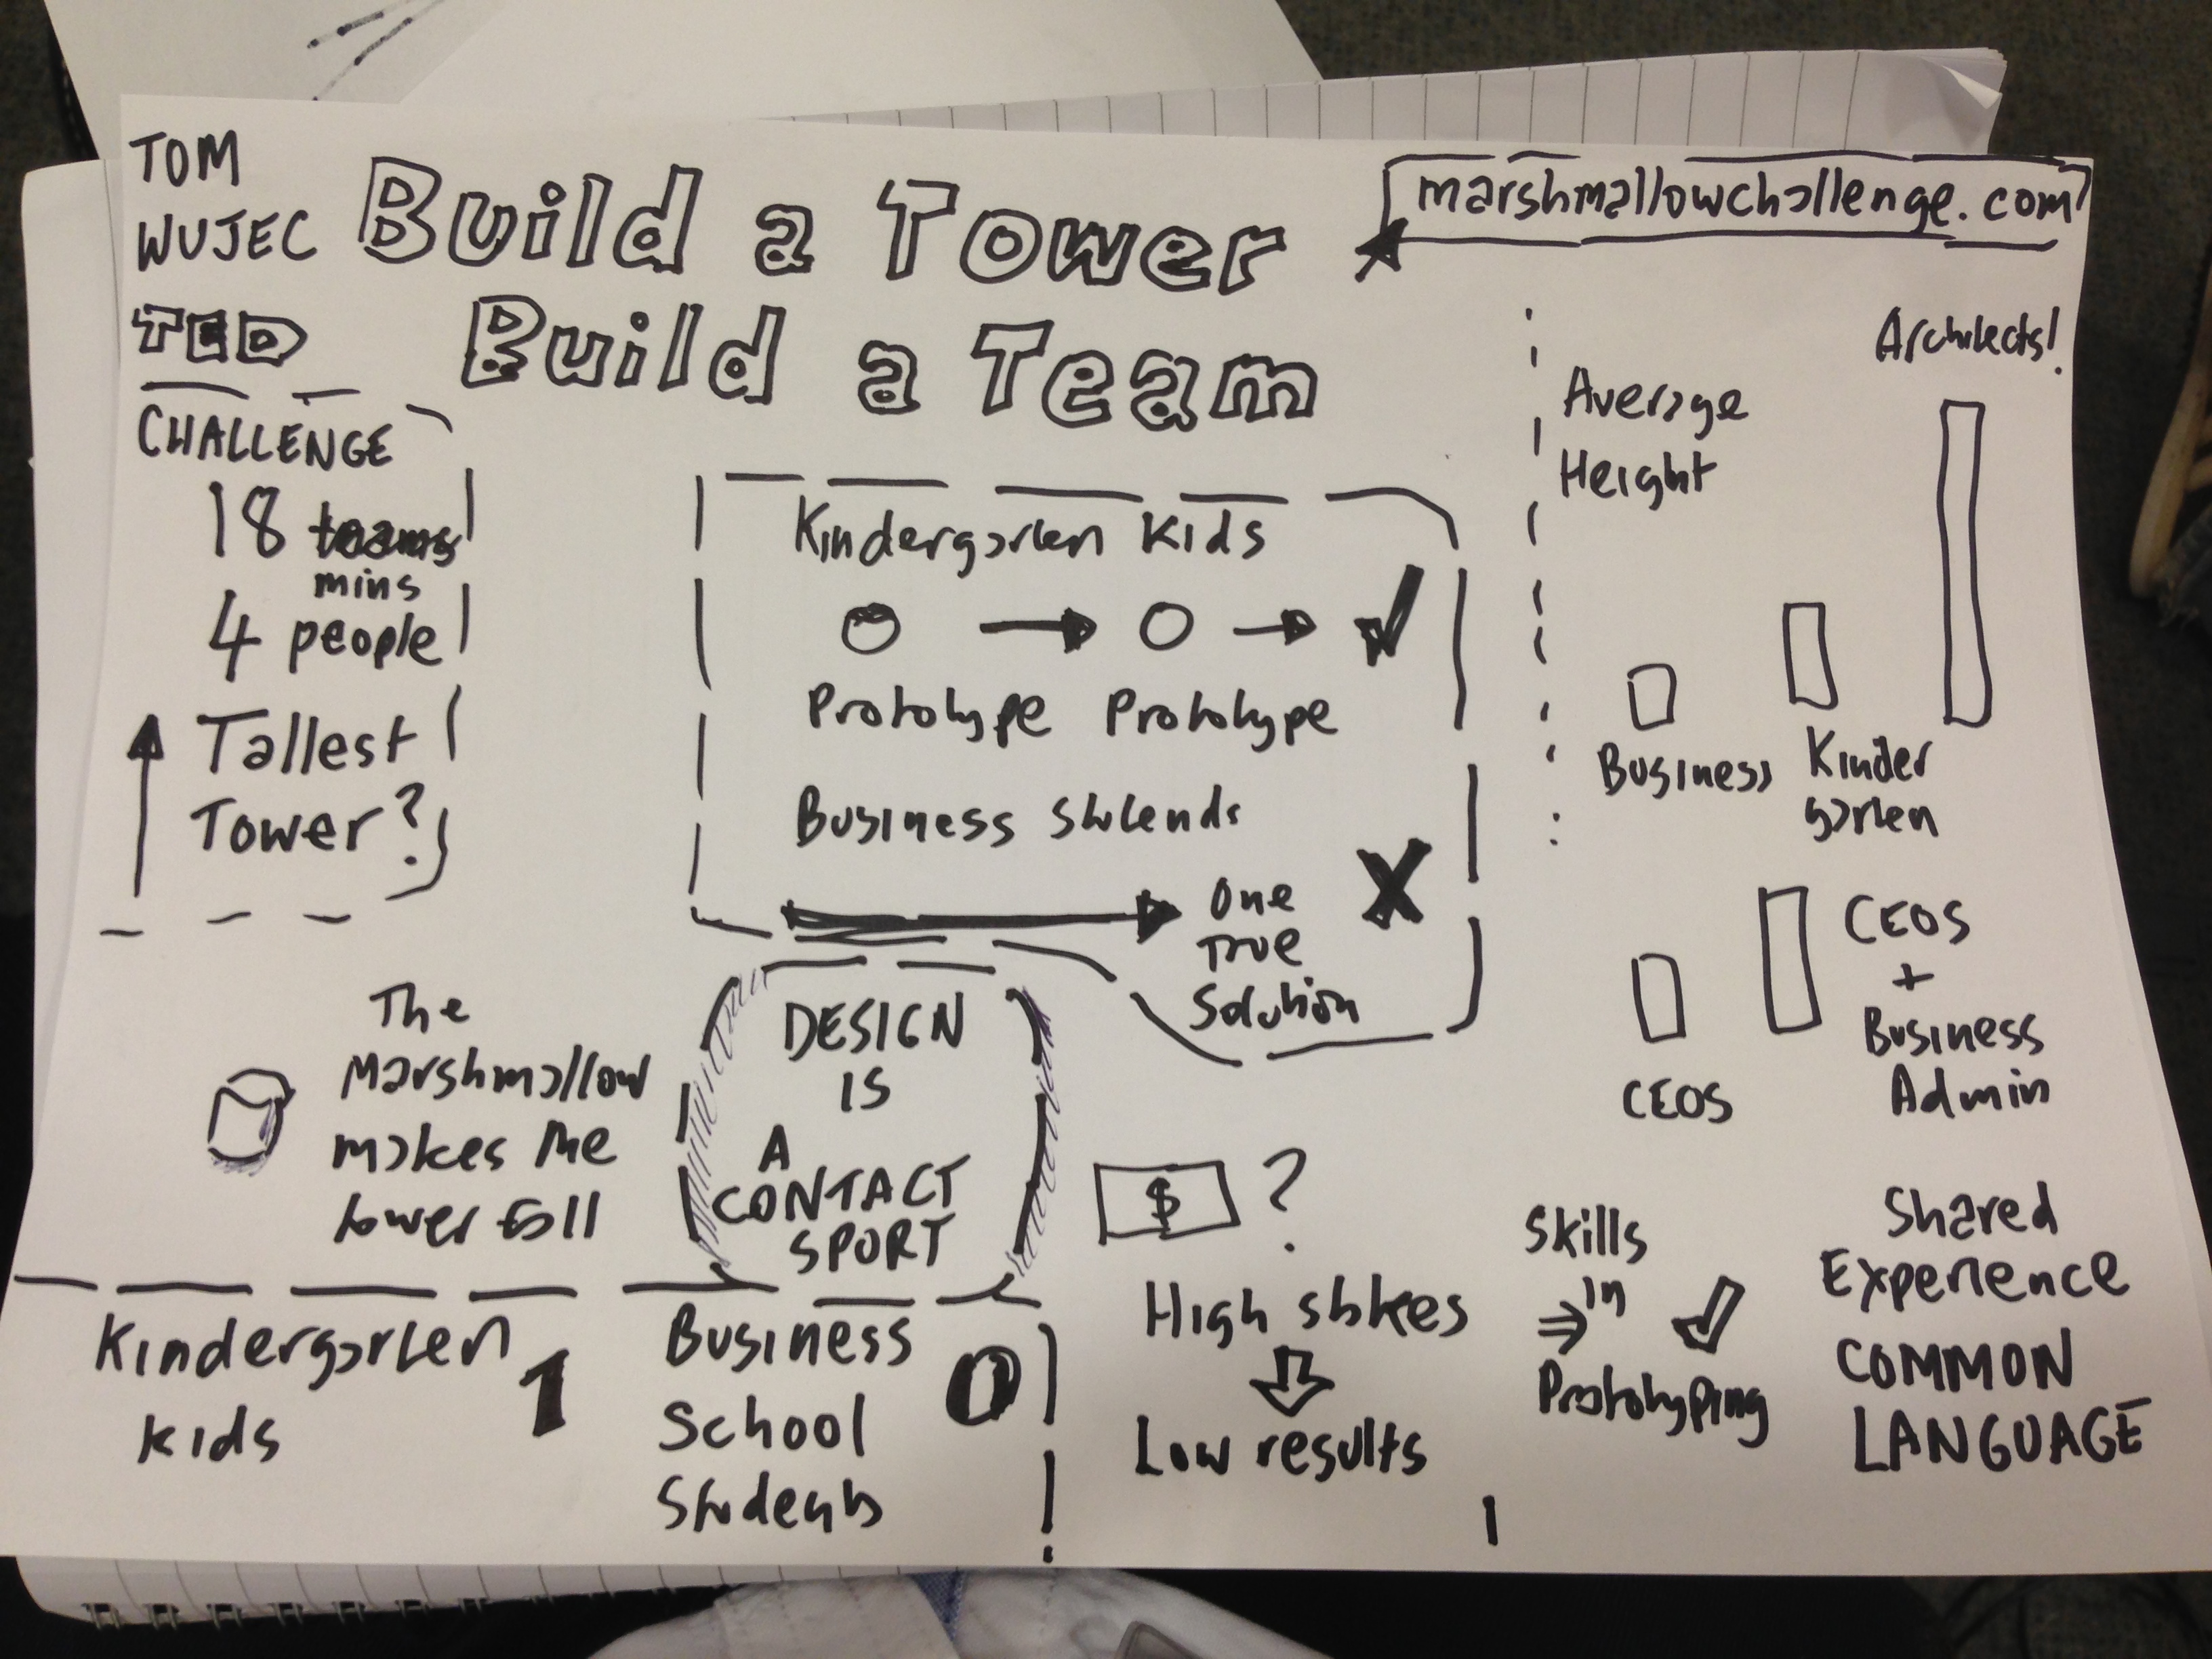 TOM
WUJEC
TED
Build a Tower
Build a Team
marshmallowchallenge.com
CHALLENGE
18 teams
mins
4 people
Tallest
Tower?
Kindergarten Kids
Prototype Prototype
Business Students
One
True
Solution
X
Average
Height
Architects!
Business
Kinder
garten
CEOS
CEOS
+
Business
Admin
The
Marshmallow
makes the
tower fall
DESIGN
IS
A
CONTACT
SPORT
Kindergarten
Kids
1
Business
School
Students
0
$ ?
High stakes
Low results
Skills
in
Prototyping
Shared
Experience
COMMON
LANGUAGE